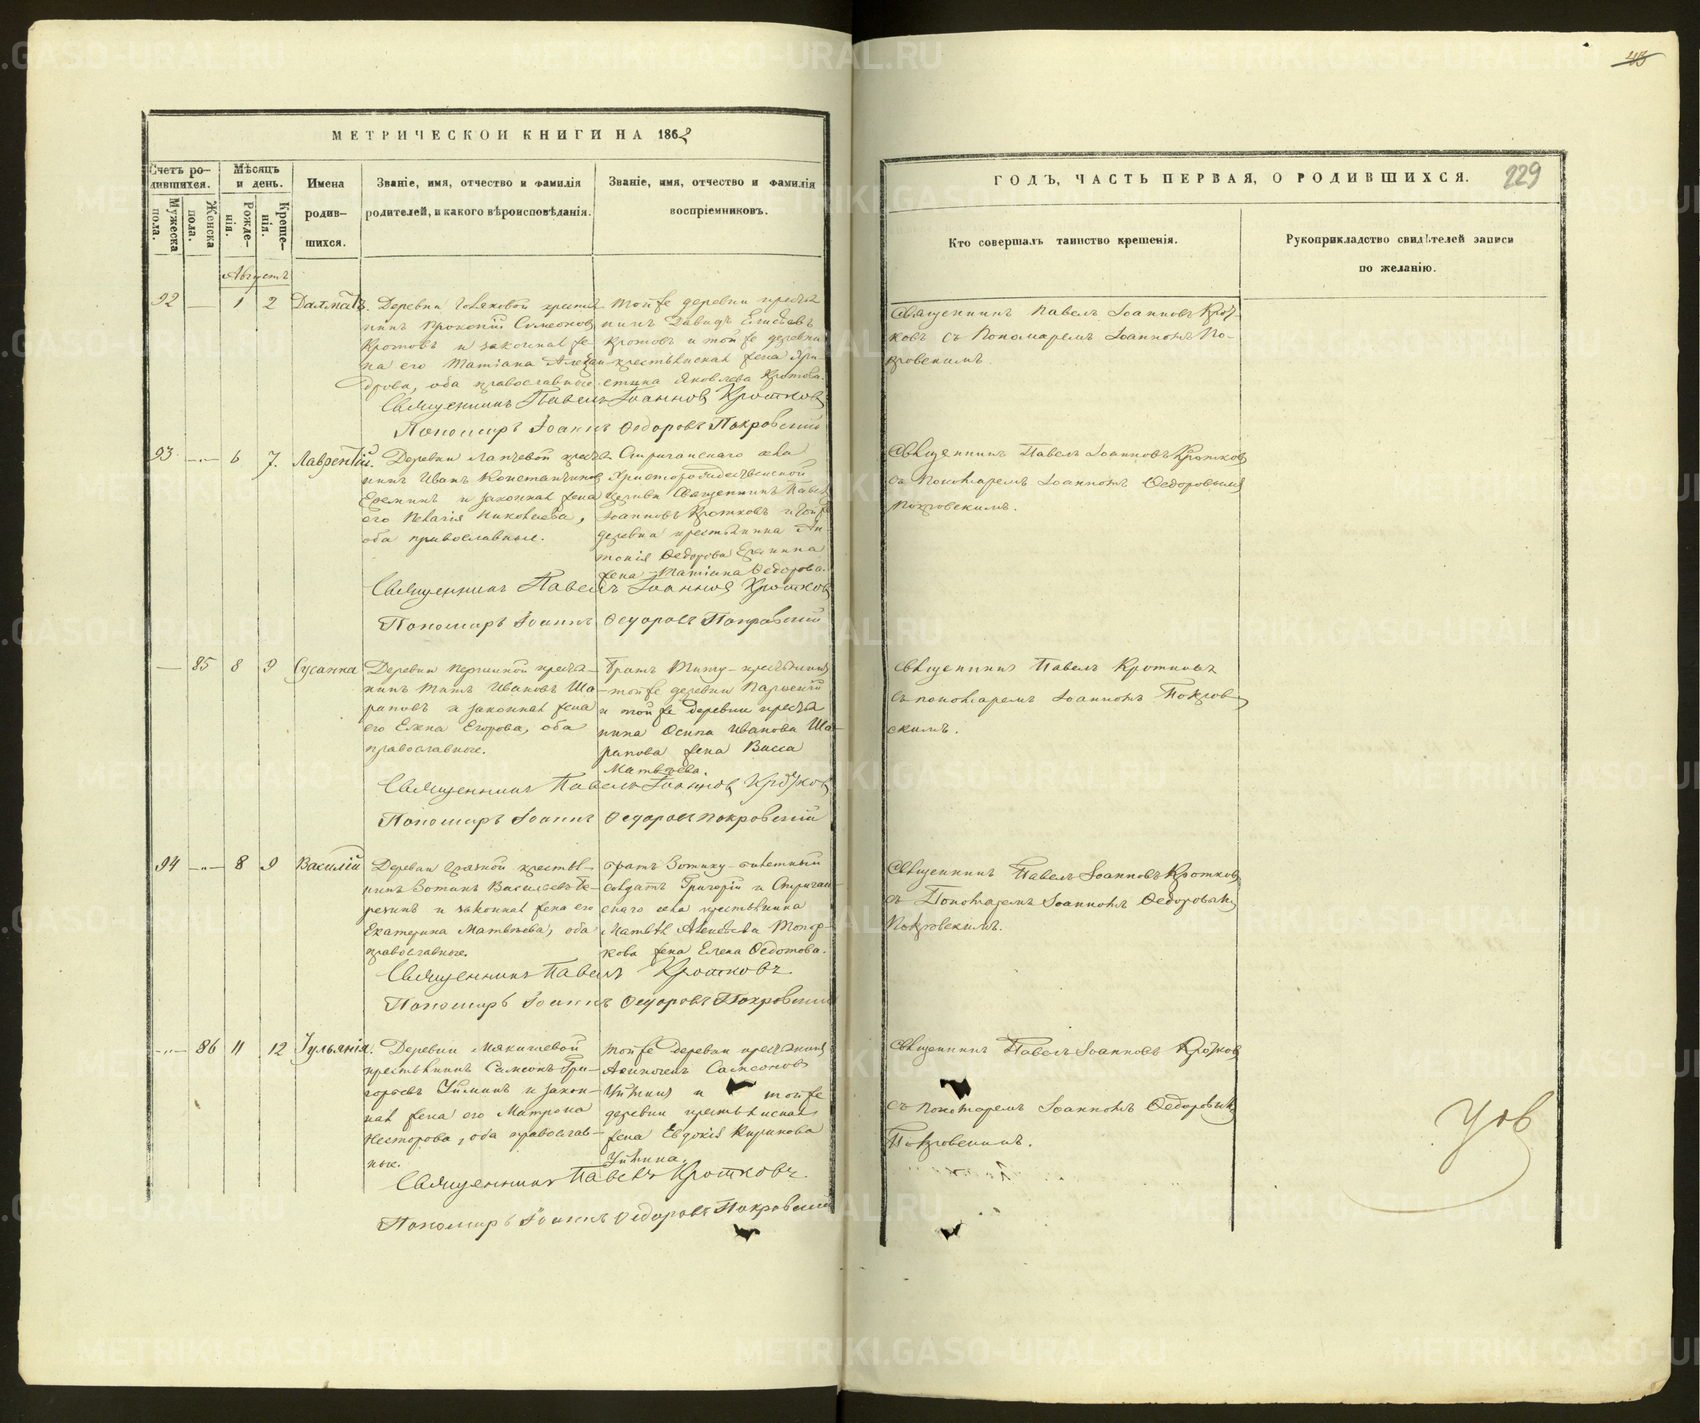 МЕТРИЧЕСКОЙ КНИГИ НА 1862
Счетъ ро-
дившихся.
Мужеска
пола.
Женска
пола.
Мѣсяцъ
и день.
Рожде-
нія.
Креще-
нія.
Имена
родив-
шихся.
Званіе, имя, отчество и фамилія
родителей, и какого вѣроисповѣданія.
Званіе, имя, отчество и фамилія
воспріемниковъ.
Августъ
92 — 1 2 Далматъ.
Деревни крестья-
нинъ Прокопій Симеоновъ
Кротовъ и законная же-
на его Татіана Алексан-
дрова, оба православные.
Той же деревни крестья
нинъ Давидъ Елисѣевъ
Кротовъ и той же деревни
крестьянская жена Хри-
стина Яковлева Кротова.
Священникъ Павелъ Іоанновъ Кротковъ
Пономарь Іоаннъ Ѳедоровъ Покровскій
93 —„— 6 7. Лаврентій.
Деревни Лапшевой крестья-
нинъ Иванъ Константиновъ
Ереминъ и законная жена
его Пелагія Николаева,
оба православные.
Стриганскаго села
Христорождественской
Церкви Священникъ Павелъ
Іоанновъ Кротковъ и той же
деревни крестьянина Ан-
тонія Ѳедорова Еремина
жена Татіана Ѳедорова.
Священникъ Павелъ Іоанновъ Кротковъ
Пономарь Іоаннъ Ѳедоровъ Покровскій
— 85 8 9 Сусанна
Деревни Першиной крестья-
нинъ Титъ Ивановъ Ша-
раповъ и законная жена
его Елена Егорова, оба
православные.
братъ Титу - крестьянинъ
той же деревни
и той же деревни крестья
нина Осипа Иванова Ша-
рапова жена Васса
Матвѣева.
Священникъ Павелъ Іоанновъ Кротковъ
Пономарь Іоаннъ Ѳедоровъ Покровскій
94 —„— 8 9 Василій
Деревни Грязной крестья-
нинъ Зотикъ Васильевъ
и законная жена его
Екатерина Матвѣева, оба
православные.
братъ Зотику - билетный
солдатъ Григорій и Стриган-
скаго села крестьянина
Матвѣя Алексѣева Топор-
кова жена Елена Ѳедотова.
Священникъ Павелъ Кротковъ
Пономарь Іоаннъ Ѳедоровъ Покровскій
—„— 86 11 12 Іульянія.
Деревни Мякишевой
крестьянинъ Самсонъ Гри-
горьевъ и закон-
ная жена его Матрона
Несторова, оба православ-
ные.
той же деревни крестьянинъ
Самсоновъ
и той же
деревни крестьянская
жена Евдокія Кирикова
Священникъ Павелъ Кротковъ
Пономарь Іоаннъ Ѳедоровъ Покровскій
43
229
ГОДЪ, ЧАСТЬ ПЕРВАЯ, О РОДИВШИХСЯ.
Кто совершалъ таинство крещенія.
Рукоприкладство свидѣтелей записи
по желанію.
Священникъ Павелъ Іоанновъ Крот-
ковъ съ Пономаремъ Іоанномъ По-
кровскимъ.
Священникъ Павелъ Іоанновъ Кротковъ
съ Пономаремъ Іоанномъ Ѳедоровымъ
Покровскимъ.
Священникъ Павелъ Кротковъ
съ пономаремъ Іоанномъ Покров-
скимъ.
Священникъ Павелъ Іоанновъ Кротковъ
съ Пономаремъ Іоанномъ Ѳедоровымъ
Покровскимъ.
Священникъ Павелъ Іоанновъ Кротковъ
съ пономаремъ Іоанномъ Ѳедоровымъ
Покровскимъ.
METRIKI.GASO-URAL.RU